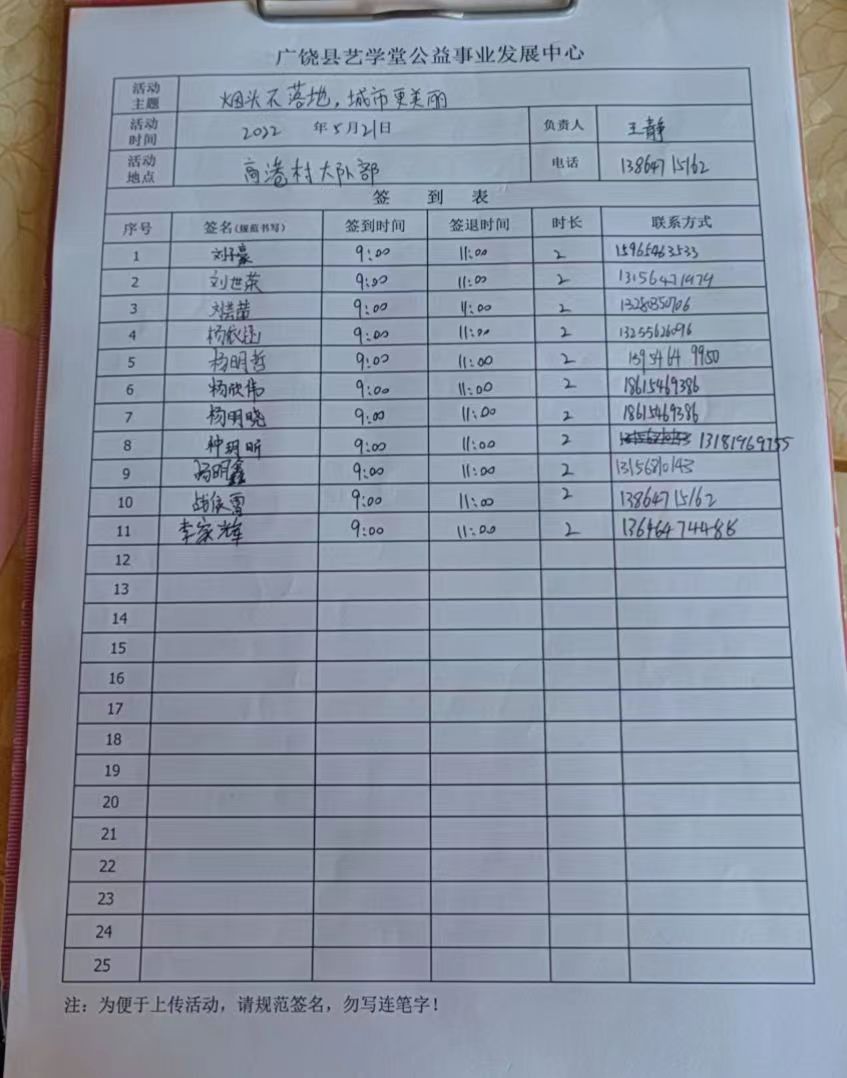 广饶县艺学堂公益事业发展中心
活动主题 烟头不落地，城市更美丽
活动时间 2022 年5月21日 负责人 王静
活动地点 高港村大队部 电话 13864715162
签到表
序号 签名(规范书写) 签到时间 签退时间 时长 联系方式
1 刘子豪 9:00 11:00 2 15965463533
2 刘世荣 9:00 11:00 2 13156471979
3 9:00 11:00 2
4 9:00 11:00 2 13255626096
5 杨明哲 9:00 11:00 2 1395464 9950
6 杨欣伟 9:00 11:00 2 18615469386
7 杨明晓 9:00 11:00 2 18615469386
8 钟玥昕 9:00 11:00 2 13181969755
9 杨明鑫 9:00 11:00 2
10 9:00 11:00 2 13864715162
11 李家辉 9:00 11:00 2 13646474488
12
13
14
15
16
17
18
19
20
21
22
23
24
25
注：为便于上传活动，请规范签名，勿写连笔字！